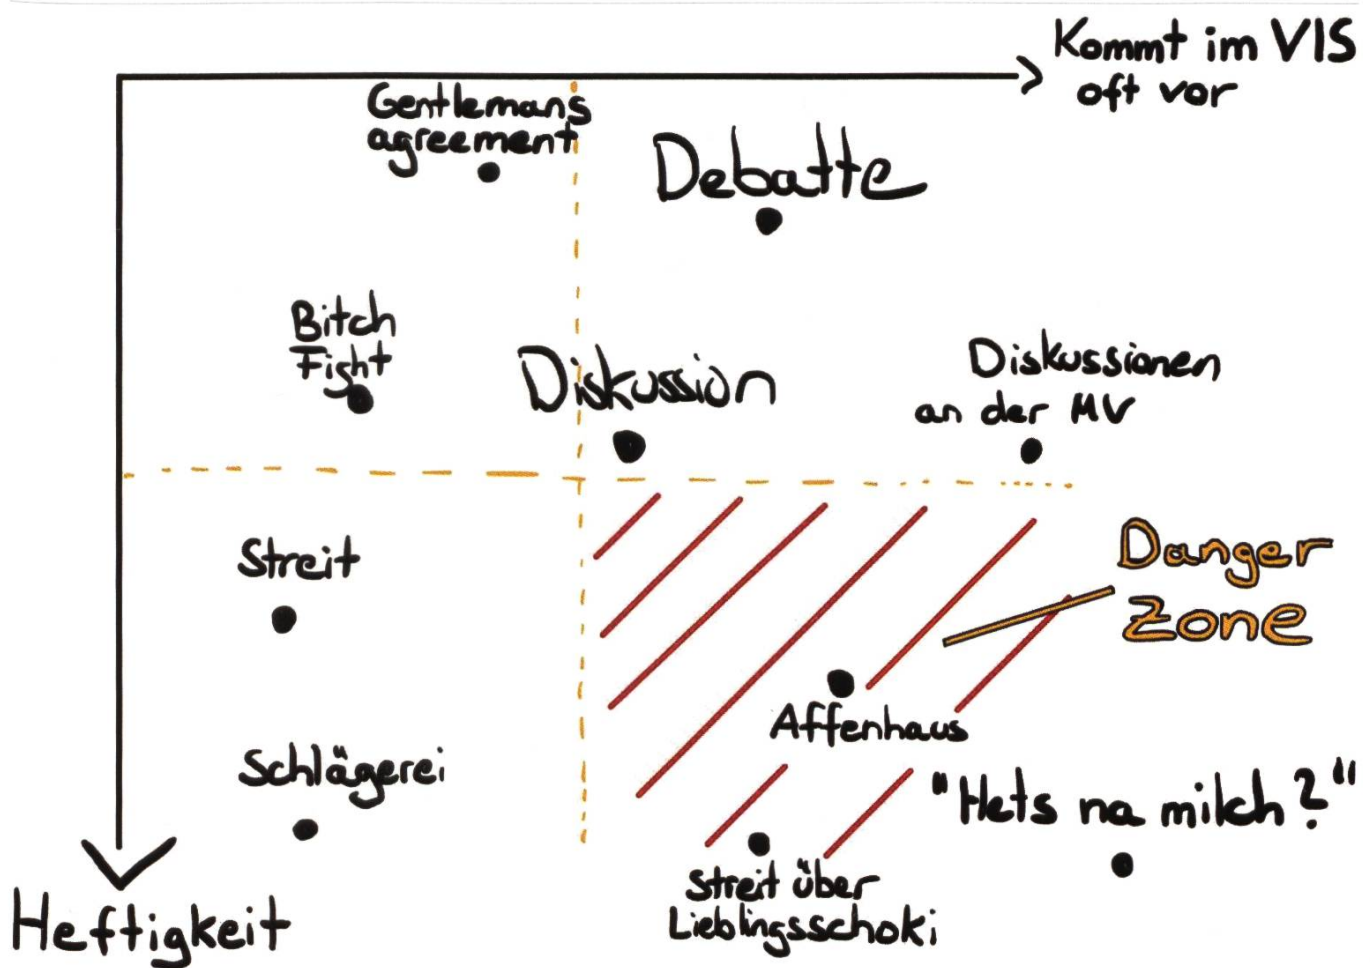 Kommt im VIS
oft vor
Gentlemans
agreement
Debatte
Bitch
Fight
Diskussion
Diskussionen
an der MV
Streit
Danger
Zone
Affenhaus
Schlägerei
"Hets na milch?"
Streit über
Lieblingsschoki
Heftigkeit